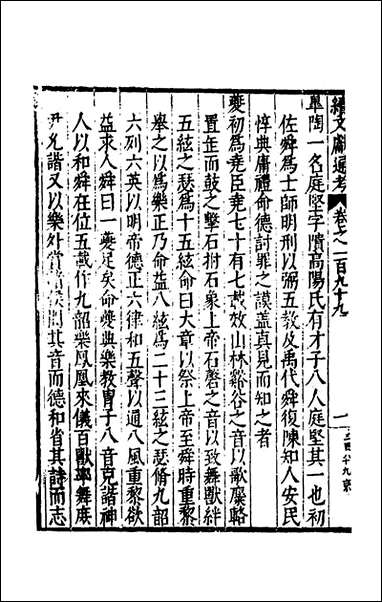 續文獻通考　卷之一百九十九
臯陶一名庭堅字隤高陽氏有才子八人庭堅其一也初
佐舜爲士師明刑以弼五教及禹代舜復陳知人安民
惇典庸禮命德討罪之謨蓋真見而知之者
夔初爲堯臣堯七十有七載效山林谿谷之音以歌麋𩊚
置缶而鼓之擊石拊石象上帝石磬之音以致舞獸絆
五絃之瑟爲十五絃命曰大章以祭上帝至舜時重黎
舉之以爲樂正乃命益八絃爲二十三絃之瑟脩九韶
六列六英以明帝德正六律和五聲以通八風重黎欲
益求人舜曰一夔足矣命夔典樂教冑子八音克諧神
人以和舜在位五載作九韶樂鳳凰來儀百獸率舞庶
尹允諧又以樂外賞諸侯聞其音而德和省其詩而志
一